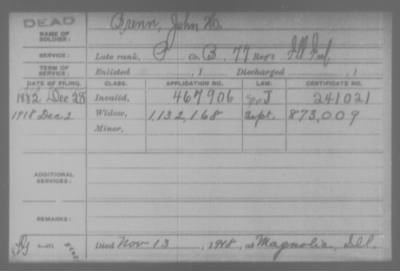 DEAD
NAME OF SOLDIER: Drenn, John W.
SERVICE: Late rank, P Co. B, 77 Reg't Ill Inf.
TERM OF SERVICE: Enlisted , 1 Discharged , 1
DATE OF FILING. CLASS. APPLICATION NO. LAW. CERTIFICATE NO.
1882 Dec 28 Invalid, 467906 J 241021
1918 Dec 2 Widow, 1,132,168 Sept. 873,009
Minor,
ADDITIONAL SERVICES:
REMARKS:
Died Nov 13, 1918, at Magnolia, Ill.